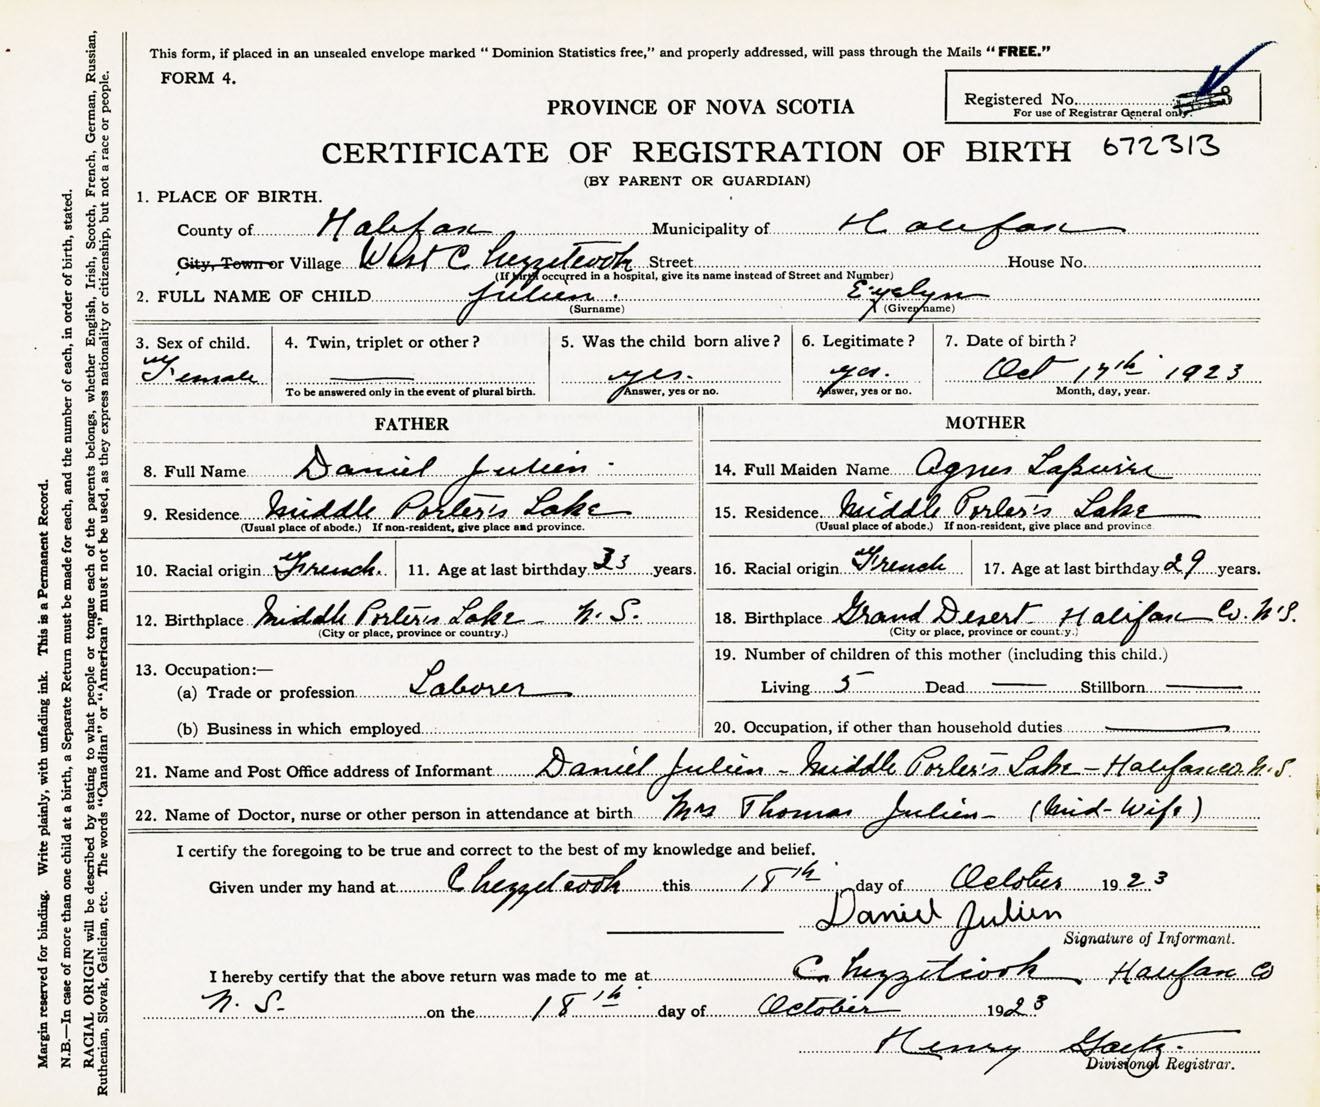 This form, if placed in an unsealed envelope marked "Dominion Statistics free," and properly addressed, will pass through the Mails "FREE."
FORM 4.
Registered No.
For use of Registrar General only.
PROVINCE OF NOVA SCOTIA
CERTIFICATE OF REGISTRATION OF BIRTH 672313
(BY PARENT OR GUARDIAN)
1. PLACE OF BIRTH.
County of Halifax Municipality of Halifax
City, Town or Village West Chezzetcook Street House No.
(If birth occurred in a hospital, give its name instead of Street and Number)
2. FULL NAME OF CHILD Julien Evelyn
(Surname) (Given name)
3. Sex of child. Female
4. Twin, triplet or other?
To be answered only in the event of plural birth.
5. Was the child born alive? yes.
Answer, yes or no.
6. Legitimate? yes.
Answer, yes or no.
7. Date of birth?
Oct 17th 1923
Month, day, year.
FATHER
8. Full Name Daniel Julien
9. Residence Middle Porter's Lake
(Usual place of abode.) If non-resident, give place and province.
10. Racial origin French. 11. Age at last birthday 33 years.
12. Birthplace Middle Porter's Lake N.S.
(City or place, province or country.)
13. Occupation:—
(a) Trade or profession Laborer
(b) Business in which employed
MOTHER
14. Full Maiden Name Agnes
15. Residence Middle Porter's Lake
(Usual place of abode.) If non-resident, give place and province.
16. Racial origin French 17. Age at last birthday 29 years.
18. Birthplace Grand Desert Halifax Co. N.S.
(City or place, province or country.)
19. Number of children of this mother (including this child.)
Living 5 Dead — Stillborn —
20. Occupation, if other than household duties —
21. Name and Post Office address of Informant Daniel Julien - Middle Porter's Lake - Halifax Co. N.S.
22. Name of Doctor, nurse or other person in attendance at birth Mrs Thomas Julien - (Mid-Wife)
I certify the foregoing to be true and correct to the best of my knowledge and belief.
Given under my hand at Chezzetcook this 18th day of October 1923
Daniel Julien
Signature of Informant.
I hereby certify that the above return was made to me at Chezzetcook Halifax Co
N.S. on the 18th day of October 1923
Henry
Divisional Registrar.
Margin reserved for binding. Write plainly, with unfading ink. This is a Permanent Record.
N.B.—In case of more than one child at a birth, a Separate Return must be made for each, and the number of each, in order of birth, stated.
RACIAL ORIGIN will be described by stating to what people or tongue each of the parents belongs, whether English, Irish, Scotch, French, German, Russian,
Ruthenian, Slovak, Galician, etc. The words "Canadian" or "American" must not be used, as they express nationality or citizenship, but not a race or people.